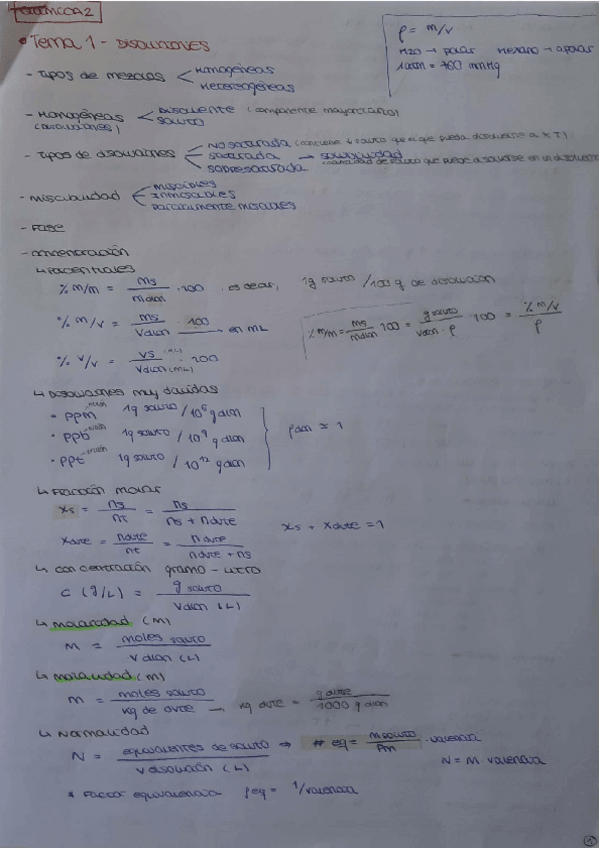 • Tema 1 - Disoluciones
ρ = m/v
H2O → polar    Hexano → apolar
1 atm = 760 mmHg
- Tipos de mezclas < Homogéneas
Heterogéneas
- Homogéneas < Disolvente (componente mayoritario)
(Disoluciones) soluto
- Tipos de disoluciones < No saturada (contiene ↓ soluto que el que pueda disolverse a x T)
saturada → solubilidad
sobresaturada (cantidad de soluto que puede disolverse en un disolvente
- Miscibilidad < miscibles
Inmiscibles
parcialmente miscibles
- Fase
- concentración
↳ Porcentuales
% m/m = ms / mdion · 100 . es decir, 1g soluto / 100 g de disolución
% m/v = ms / Vdion · 100 en mL
% m/m = ms / mdion · 100 = g soluto / Vdion · ρ · 100 = % m/v / ρ
% v/v = vs (mL) / Vdion (mL) · 100
↳ Disoluciones muy diluidas
• ppm 1g soluto / 10⁶ g dion
• ppb 1g soluto / 10⁹ g dion
• ppt 1g soluto / 10¹² g dion
ρdion ≈ 1
↳ Fracción molar
xs = ns / nt = ns / ns + ndvte
xdvte = ndvte / nt = ndvte / ndvte + ns
xs + xdvte = 1
↳ concentración gramo - litro
C (g/L) = g soluto / Vdion (L)
↳ molaridad (M)
M = moles soluto / Vdion (L)
↳ molalidad (m)
m = moles soluto / kg de dvte → kg dvte = g dvte / 1000 g dion
↳ Normalidad
N = equivalentes de soluto / V disolución (L) ⇒ # eq = m soluto / Pm · valencia
N = M · valencia
* Factor equivalencia feq = 1/valencia
1